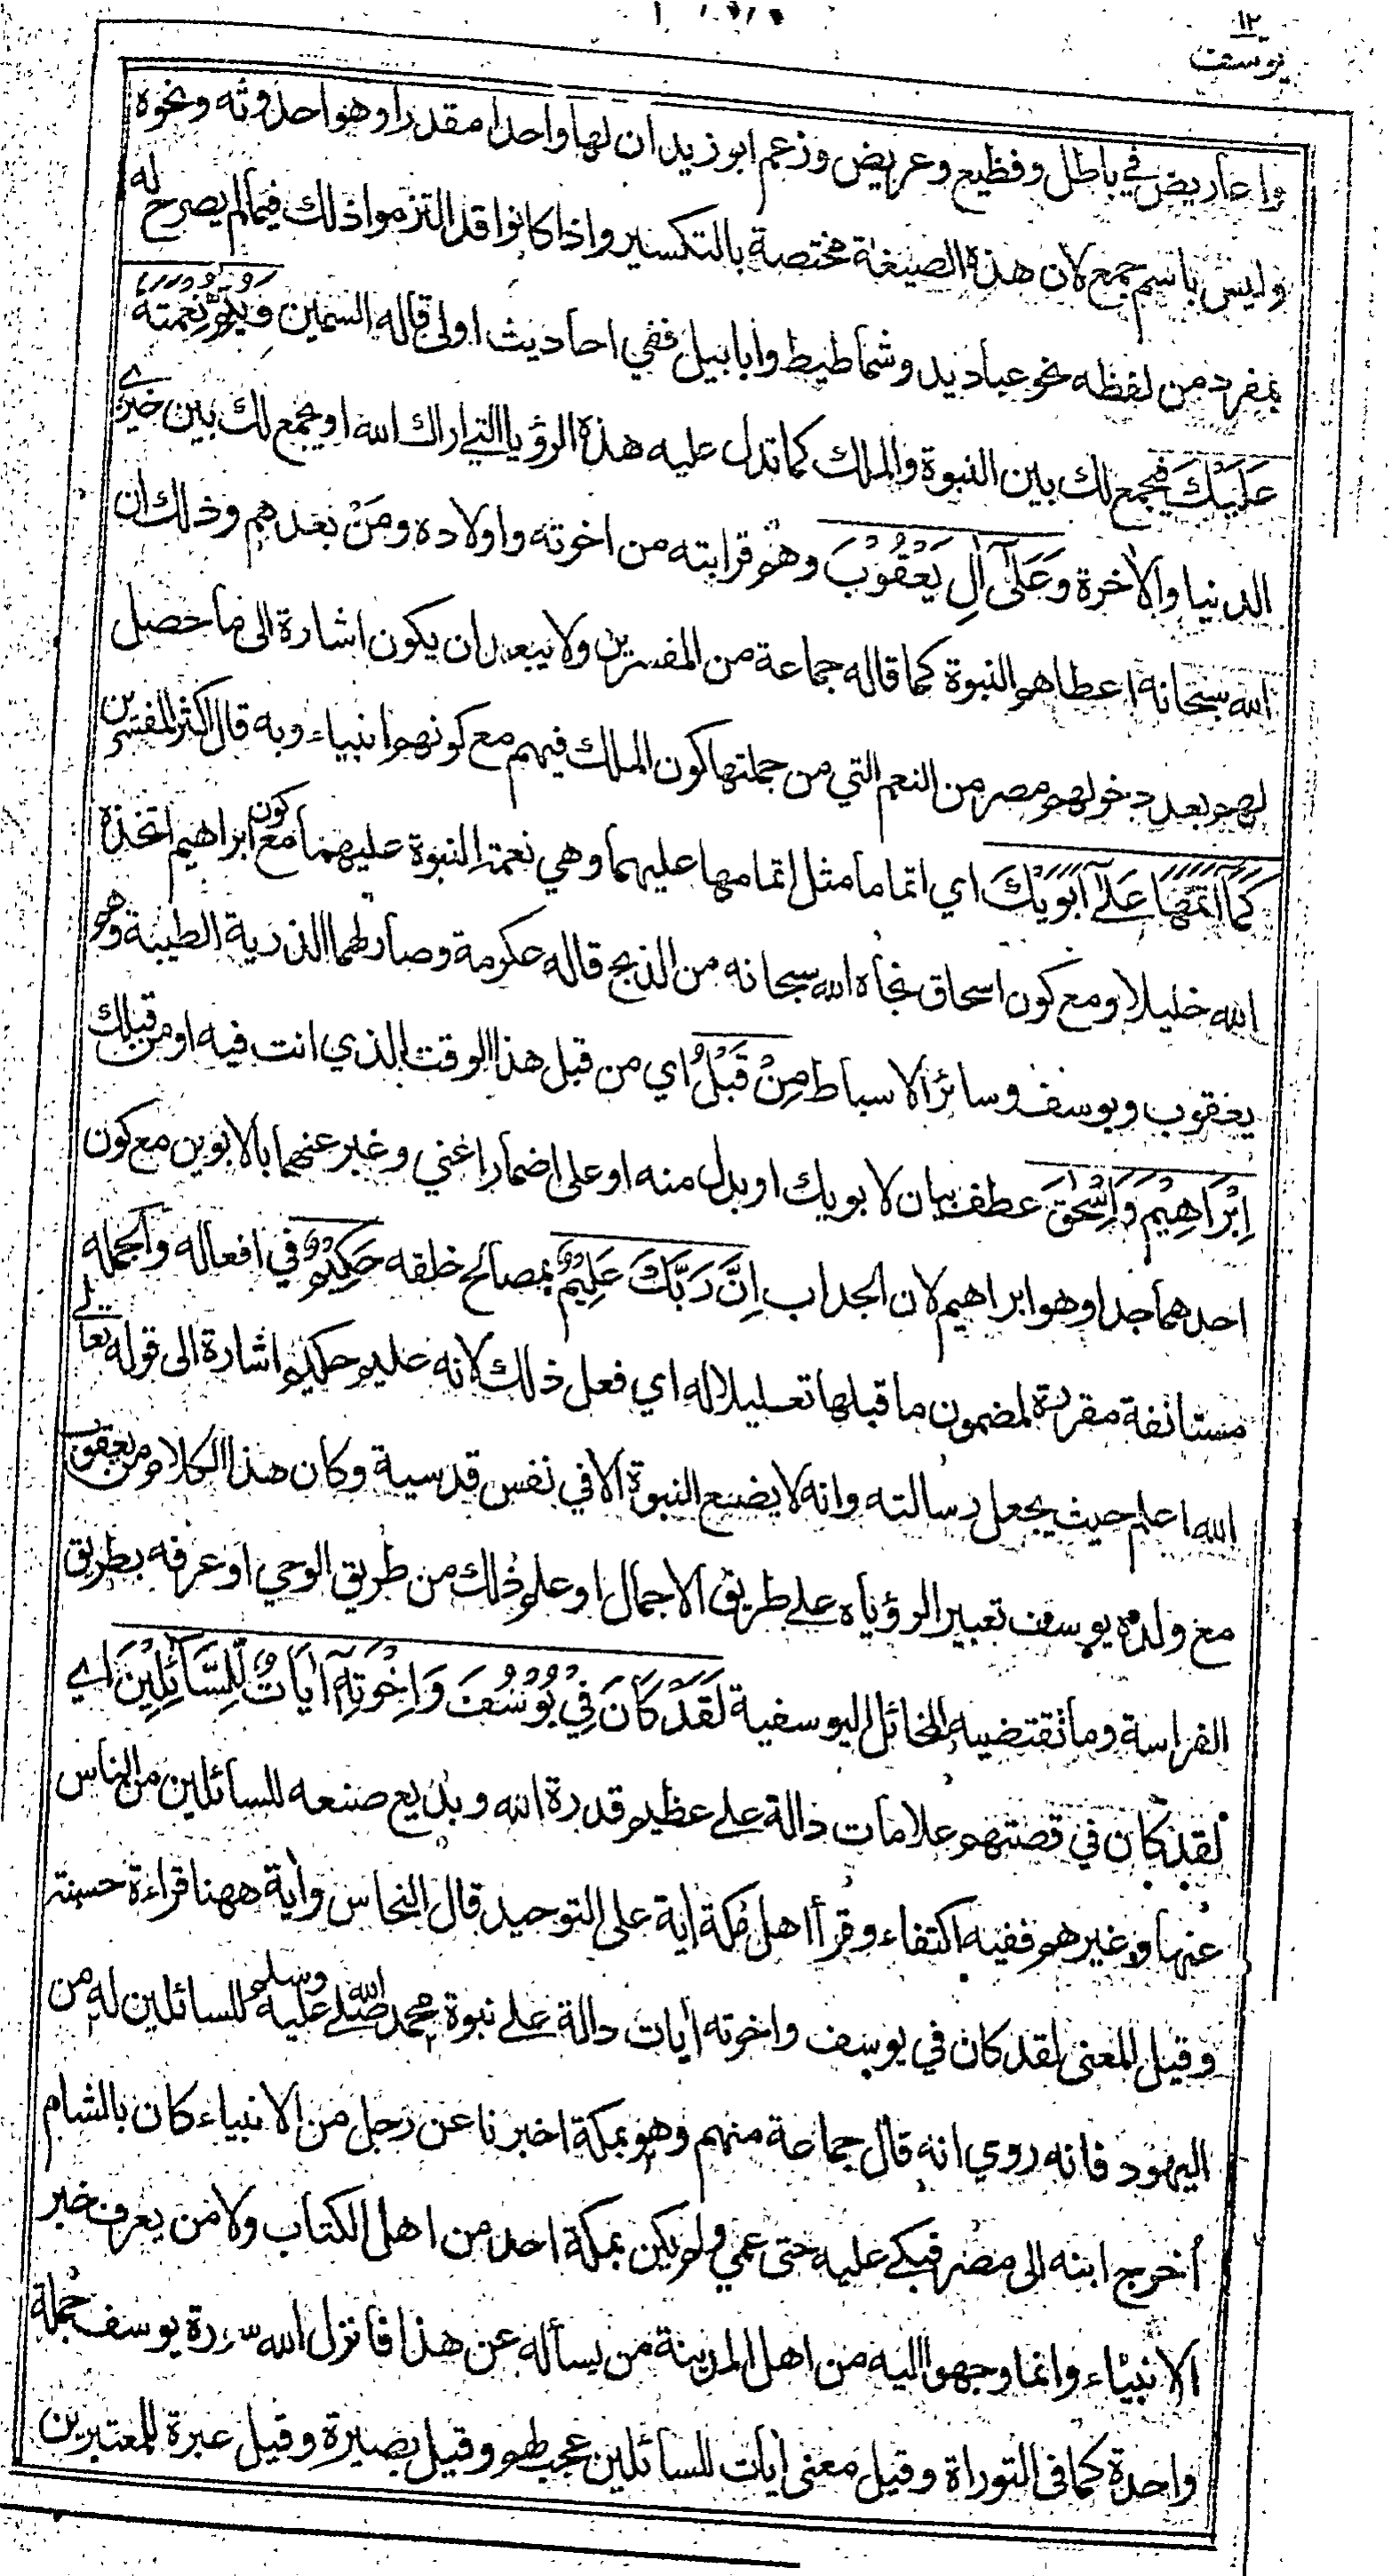 ١٢
يوسف
واعاريض في باطل وفظيع وعريض وزعم ابو زيد ان لها واحدا مقدرا وهو احدوثه ونحوه
وليس باسم جمع لان هذه الصيغة مختصة بالتكسير واذا كانوا قد التزموا ذلك فيما لم يصرح له
بمفرد من لفظه نحو عباديد وشماطيط وابابيل ففي احاديث اولى قاله السمين وَيُتِمُّ نِعْمَتَهُ
عَلَيْكَ فيجمع لك بين النبوة والملك كما تدل عليه هذه الرؤيا التي اراك الله او يجمع لك بين خيرے
الدنيا والاٰخرة وَعَلٰٓى اٰلِ يَعْقُوْبَ وهُم قرابته من اخوته واولاده ومَنْ بعدهم وذلك ان
الله سبحانه اعطاهم النبوة كما قاله جماعة من المفسرين ولا يبعد ان يكون اشارة الى ما حصل
لهم بعد دخولهم مصر من النعم التي من جملتها كون الملك فيهم مع كونهم انبياء وبه قال اكثر المفسرين
كَمَآ اَتَمَّهَا عَلٰٓى اَبَوَيْكَ اي اتماما مثل اتمامها عليهما وهي نعمة النبوة عليهما مع كون ابراهيم اتخذه
الله خليلا ومع كون اسحاق نجاه الله سبحانه من الذبح قاله عكرمة وصار لهما الذرية الطيبة وهم
يعقوب ويوسف وسائر الاسباط مِنْ قَبْلُ اي من قبل هذا الوقت الذي انت فيه او من قبلك
اِبْرَاهِيْمَ وَاِسْحٰقَ عطف بيان لابويك او بدل منه او على اضمار اعني وعبر عنهما بالابوين مع كون
احدهما جدا وهو ابراهيم لان الجد اب اِنَّ رَبَّكَ عَلِيْمٌ بمصالح خلقه حَكِيْمٌ في افعاله والجملة
مستانفة مقررة لمضمون ما قبلها تعليلا له اي فعل ذلك لانه عليم حكيم اشارة الى قوله تعالى
الله اعلم حيث يجعل رسالته وانه لا يضع النبوة الا في نفس قدسية وكان هذا الكلام من يعقوب
مع ولده يوسف تعبيرا لرؤياه على طريق الاجمال او علم ذلك من طريق الوحي او عرفه بطريق
الفراسة وما تقتضيه المخائل اليوسفية لَقَدْ كَانَ فِيْ يُوْسُفَ وَاِخْوَتِهٖٓ اٰيَاتٌ لِّلسَّائِلِيْنَ اي
لقد كان في قصتهم علامات دالة على عظيم قدرة الله وبديع صنعه للسائلين من الناس
عنها وغيرهم ففيه اكتفاء وقرأ اهل مكة اٰية على التوحيد قال النحاس واٰية ههنا قراءة حسنة
وقيل المعنى لقد كان في يوسف واخوته اٰيات دالة على نبوة محمد صلى الله عليه وسلم للسائلين له من
اليهود فانه روي انه قال جماعة منهم وهو بمكة اخبرنا عن رجل من الانبياء كان بالشام
أخرج ابنه الى مصر فبكى عليه حتى عمي ولم يكن بمكة احد من اهل الكتاب ولا من يعرف خبر
الانبياء وانما وجهوا اليه من اهل المدينة من يسأله عن هذا فانزل الله سورة يوسف جملة
واحدة كما في التوراة وقيل معنى اٰيات للسائلين عجب لهم وقيل بصيرة وقيل عبرة للمعتبرين